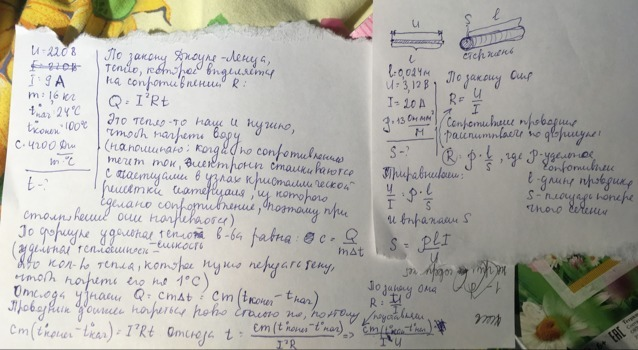 U=220В
I=9А
m=1,6 кг
t°нач=24°C
t°конеч=100°C
c=4200 Дж
m·°C
t-?
По закону Джоуля-Ленца,
тепло, которое выделяется
на сопротивлении R:
Q = I²Rt
Это тепло-то нам и нужно,
чтоб нагреть воду
(напоминаю: когда по сопротивлению
течет ток, электроны сталкиваются
с частицами в узлах кристаллической
решетки материала, из которого
сделано сопротивление, поэтому при
столкновении они нагреваются)
По формуле удельная тепло в-ва равна: c = Q
m∆t
(удельная теплоемкость
это кол-во тепла, которое нужно передать телу,
чтоб нагреть его на 1°C)
Отсюда узнаем Q = cm∆t = cm(t°конеч - t°нач)
Проводник должен нагреться ровно столько же, поэтому
cm(t°конеч - t°нач) = I²Rt Отсюда t = cm(t°конеч - t°нач) =>
I²R
По закону Ома
R = U
I
подставим:
cm(t°кон - t°нач)
I U
U
l
S
l
стержень
l=0,024м
U=3,12В
I=20А
ρ=13 Ом·мм²
м
S-?
По закону Ома
R = U
I
Сопротивление проводника
рассчитывают по формуле:
R = ρ·l/S, где ρ-удельное
сопротивлен
l-длина проводника
S-площадь попере
чного сечения
Приравниваем:
U/I = ρ·l/S
и выражаем S
S = ρlI
U